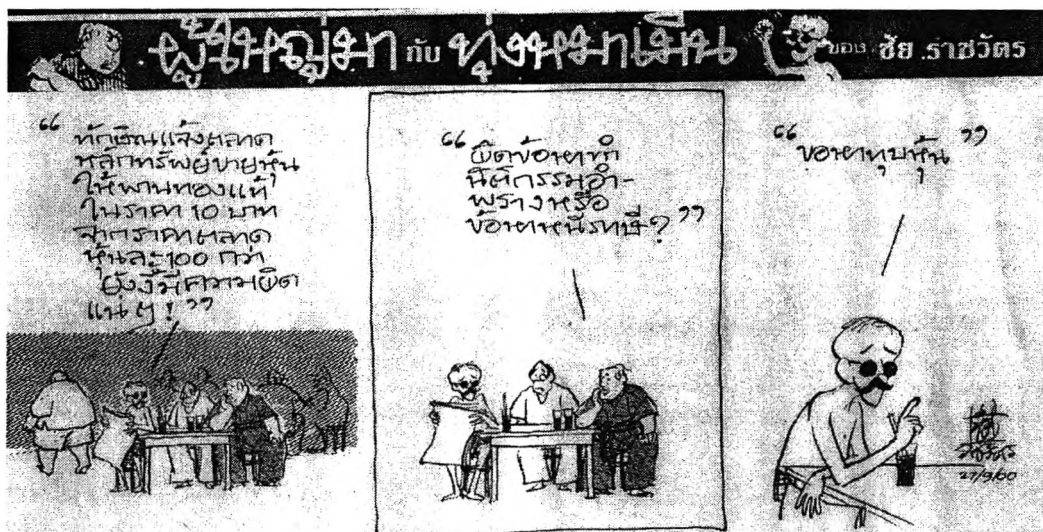 ผู้ใหญ่มา กับ ทุ่งหมาเมิน ของ ชัย ราชวัตร
“ ทักษิณแจ้งตลาด
หลักทรัพย์ขายหุ้น
ให้พานทองแท้
ในราคา 10 บาท
จากราคาตลาด
หุ้นละ 100 กว่า
ยังงี้มีความผิด
แน่ๆ! ”
“ ผิดข้อหาทำ
นิติกรรมอำ-
พรางหรือ
ข้อหาหนีภาษี? ”
“ ข้อหาทุบหุ้น ”
ชัย
ราชวัตร
27/9/00